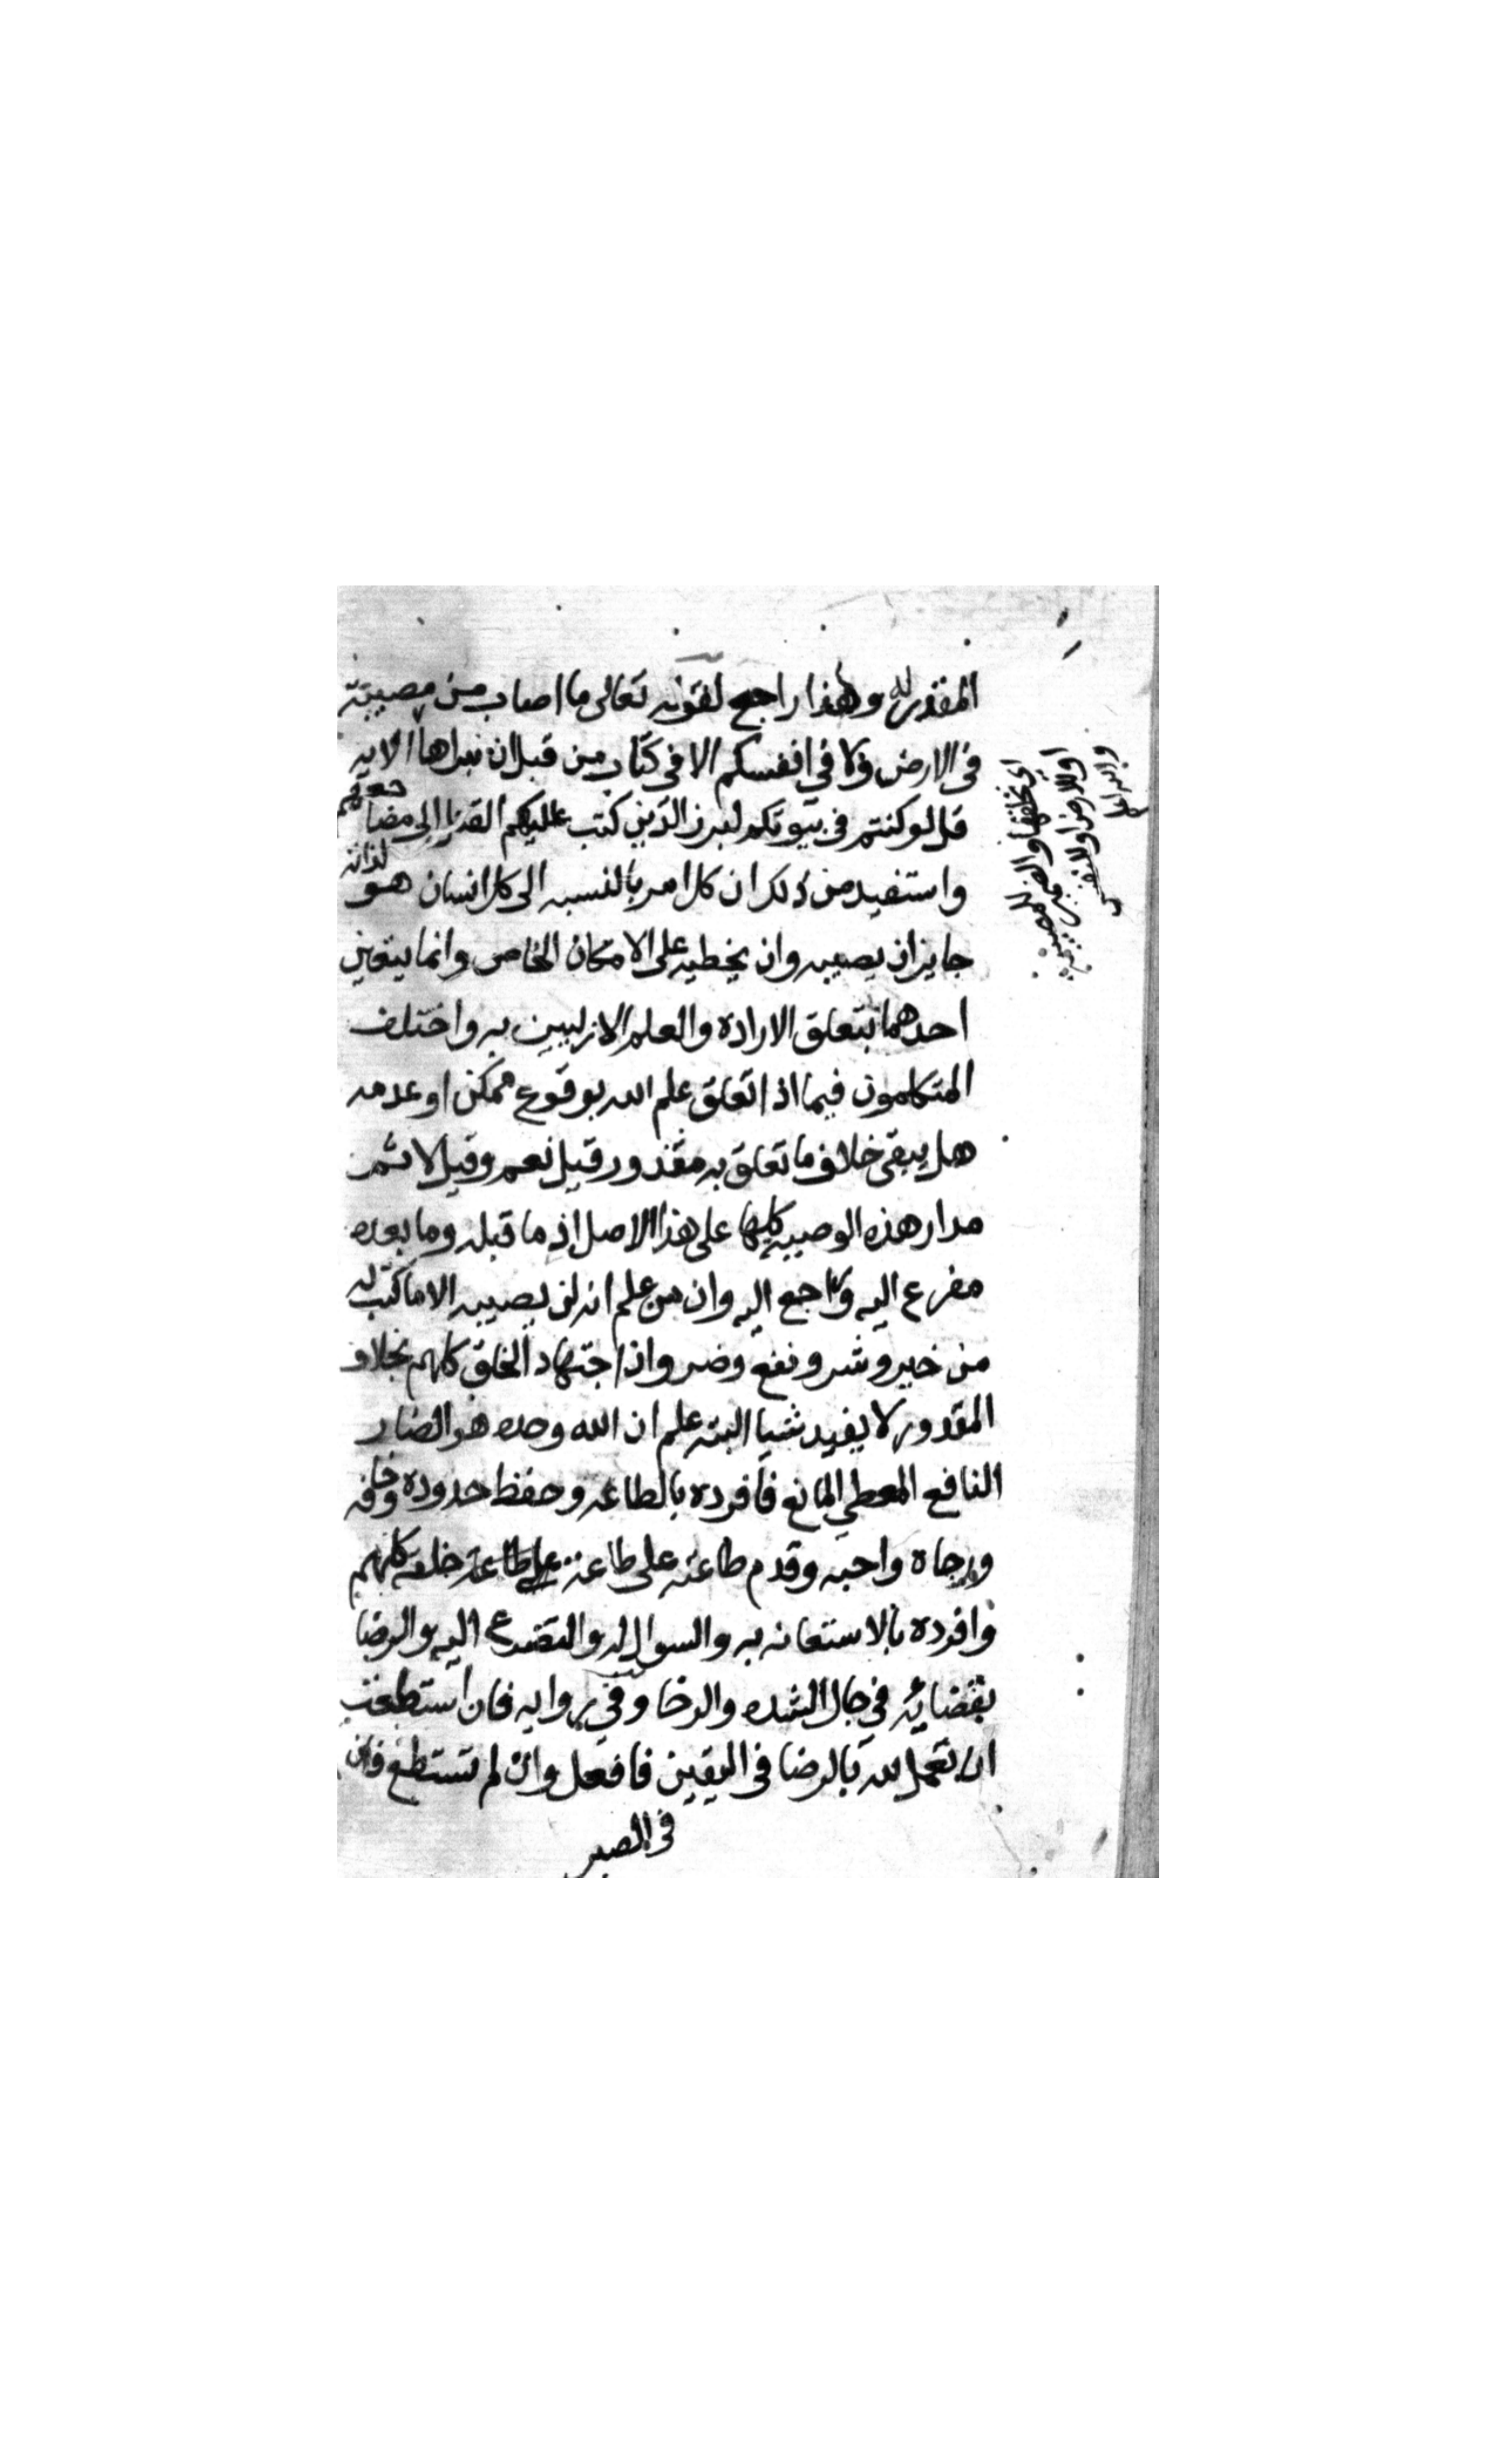 المقدر له وهذا راجع لقوله تعالى ما اصاب من مصيبة
في الارض ولا في انفسكم الا في كتاب من قبل ان نبراها الايه
قل لو كنتم في بيوتكم لبرز الذين كتب عليهم القتل الى مضاجعهم
واستفيد من ذلك ان كل امر بالنسبه الى كل انسان هو لذاته
جايز ان يصيبه وان يخطيه على الامكان الخاص وانما يتعين
احدهما بتعلق الاراده والعلم الازليين به واختلف
المتكلمون فيما اذا تعلق علم الله بوقوع ممكن او عدمه
هل يبقى خلاف ما تعلق به مقدور قيل نعم وقيل لا ثم
مدار هذه الوصيه كلها على هذا الاصل اذ ما قبله وما بعده
مفرع اليه وراجع اليه وان من علم انه لن يصيبه الا ما كتب له
من خير وشر ونفع وضر وان اجتهاد الخلق كلهم بخلاف
المقدور لا يفيد شيا البته علم ان الله وحده هو الضار
النافع المعطي المانع فافرده بالطاعه وحفظ حدوده وخافه
ورجاه واحبه وقدم طاعته على طاعة على طاعة خلقه كلهم
وافرده بالاستعانه به والسوال له والتضرع اليه والرضا
بقضائه في حال الشده والرخا وفي روايه فان استطعت
ان تعمل لله بالرضا في اليقين فافعل وان لم تستطع فان
في الصبر
اي نخلقها والضمير للمصيبة
او للارض او للانفس